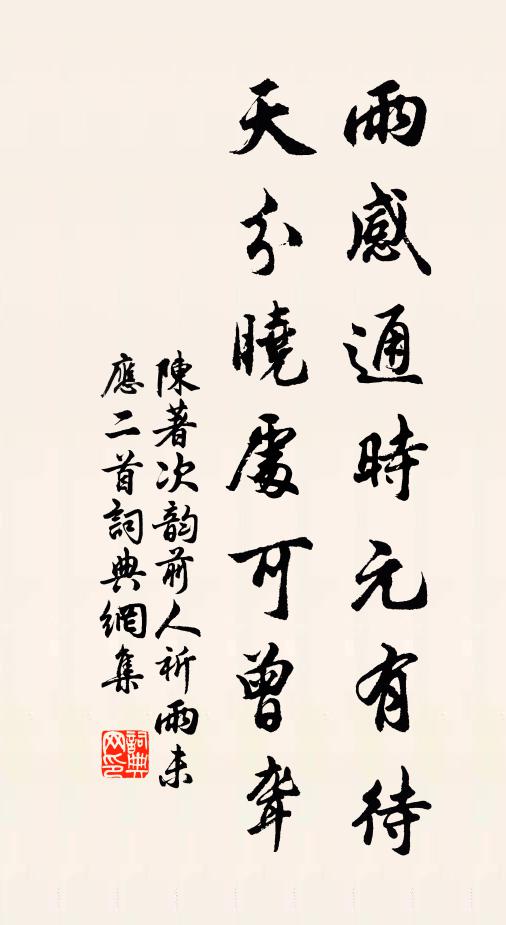 雨感通時元有待
天分曉處可曾聾
陳著次韵前人祈雨未
應二首詞典網集
詞典
网印